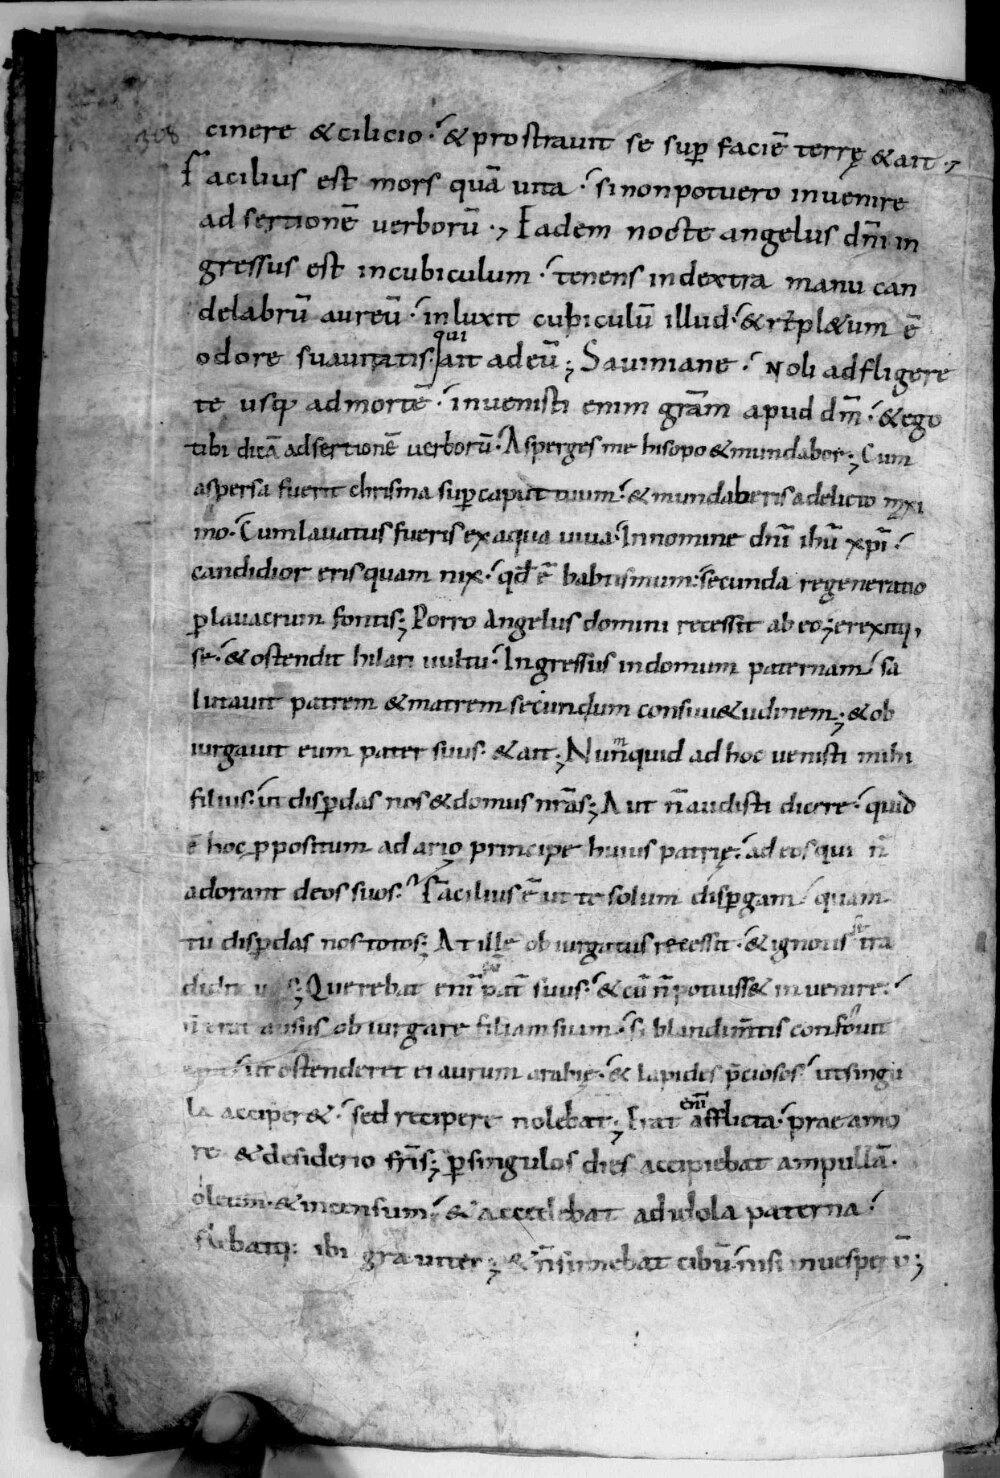 308
cinere & cilicio · & prostrauit se sup faciē terrę & ait ·,
Facilius est mors quā uita · si non potuero inuenire
adsertionē uerborū ·, Eadem nocte angelus dn̄i in
gressus est incubiculum · tenens indextra manu can
delabrū aureū · inluxit cubiculū illud · & repl&um ē
odore suauitatis · qui ait adeū ; Sauiniane · Noli adfligere
te usq; admortē · inuenisti enim grām apud dm̄ · & ego
tibi dicā adsertionē uerborū · Asperges me hisopo & mundabor ; Cum
aspersa fuerit chrisma sup caput tuum · & mundaberis adelicto maxi
mo · Cum lauatus fueris ex aqua uiua · In nomine dn̄i ihū xp̄i ·
candidior eris quam nix · qd̄ ē babtismum : secunda regeneratio
p lauacrum fontis ; Porro Angelus domini recessit ab eo ; erexitq;
se · & ostendit hilari uultu · Ingressus indomum paternam · sa
lutauit patrem & matrem secundum consuu&udinem ; & ob
iurgauit eum pater suus · & ait ; Numquid ad hoc uenisti mihi
filius · ut dispdas nos & domus nr̄as ; Aut n̄ audisti dicere · quid
ē hoc ppositum ad principe huius patrię · ad eos qui n̄
adorant deos suos · Facilius ē ut te solum dispgam · quam
tu dispdas nos totos ; At ille obiurgatus recessit · & ignotis se tra
Querebat enī pat̄ suus · & cū n̄ potuiss& inuenire ·
n̄ erat ausus obiurgare filiam suam · si blandim̄tis
ut ostenderet ei aurum arabię · & lapides p̄ciosos · ut singu
la acciper& · sed recipere nolebat ; Erat enī afflicta · prae amo
re & desiderio fr̄is ; p singulos dies accipiebat ampullā ·
oleum · & incensum · & accedebat ad idola paterna ·
flebatq; ibi grauiter ; & n̄ sumebat cibū · nisi inuesperū ;